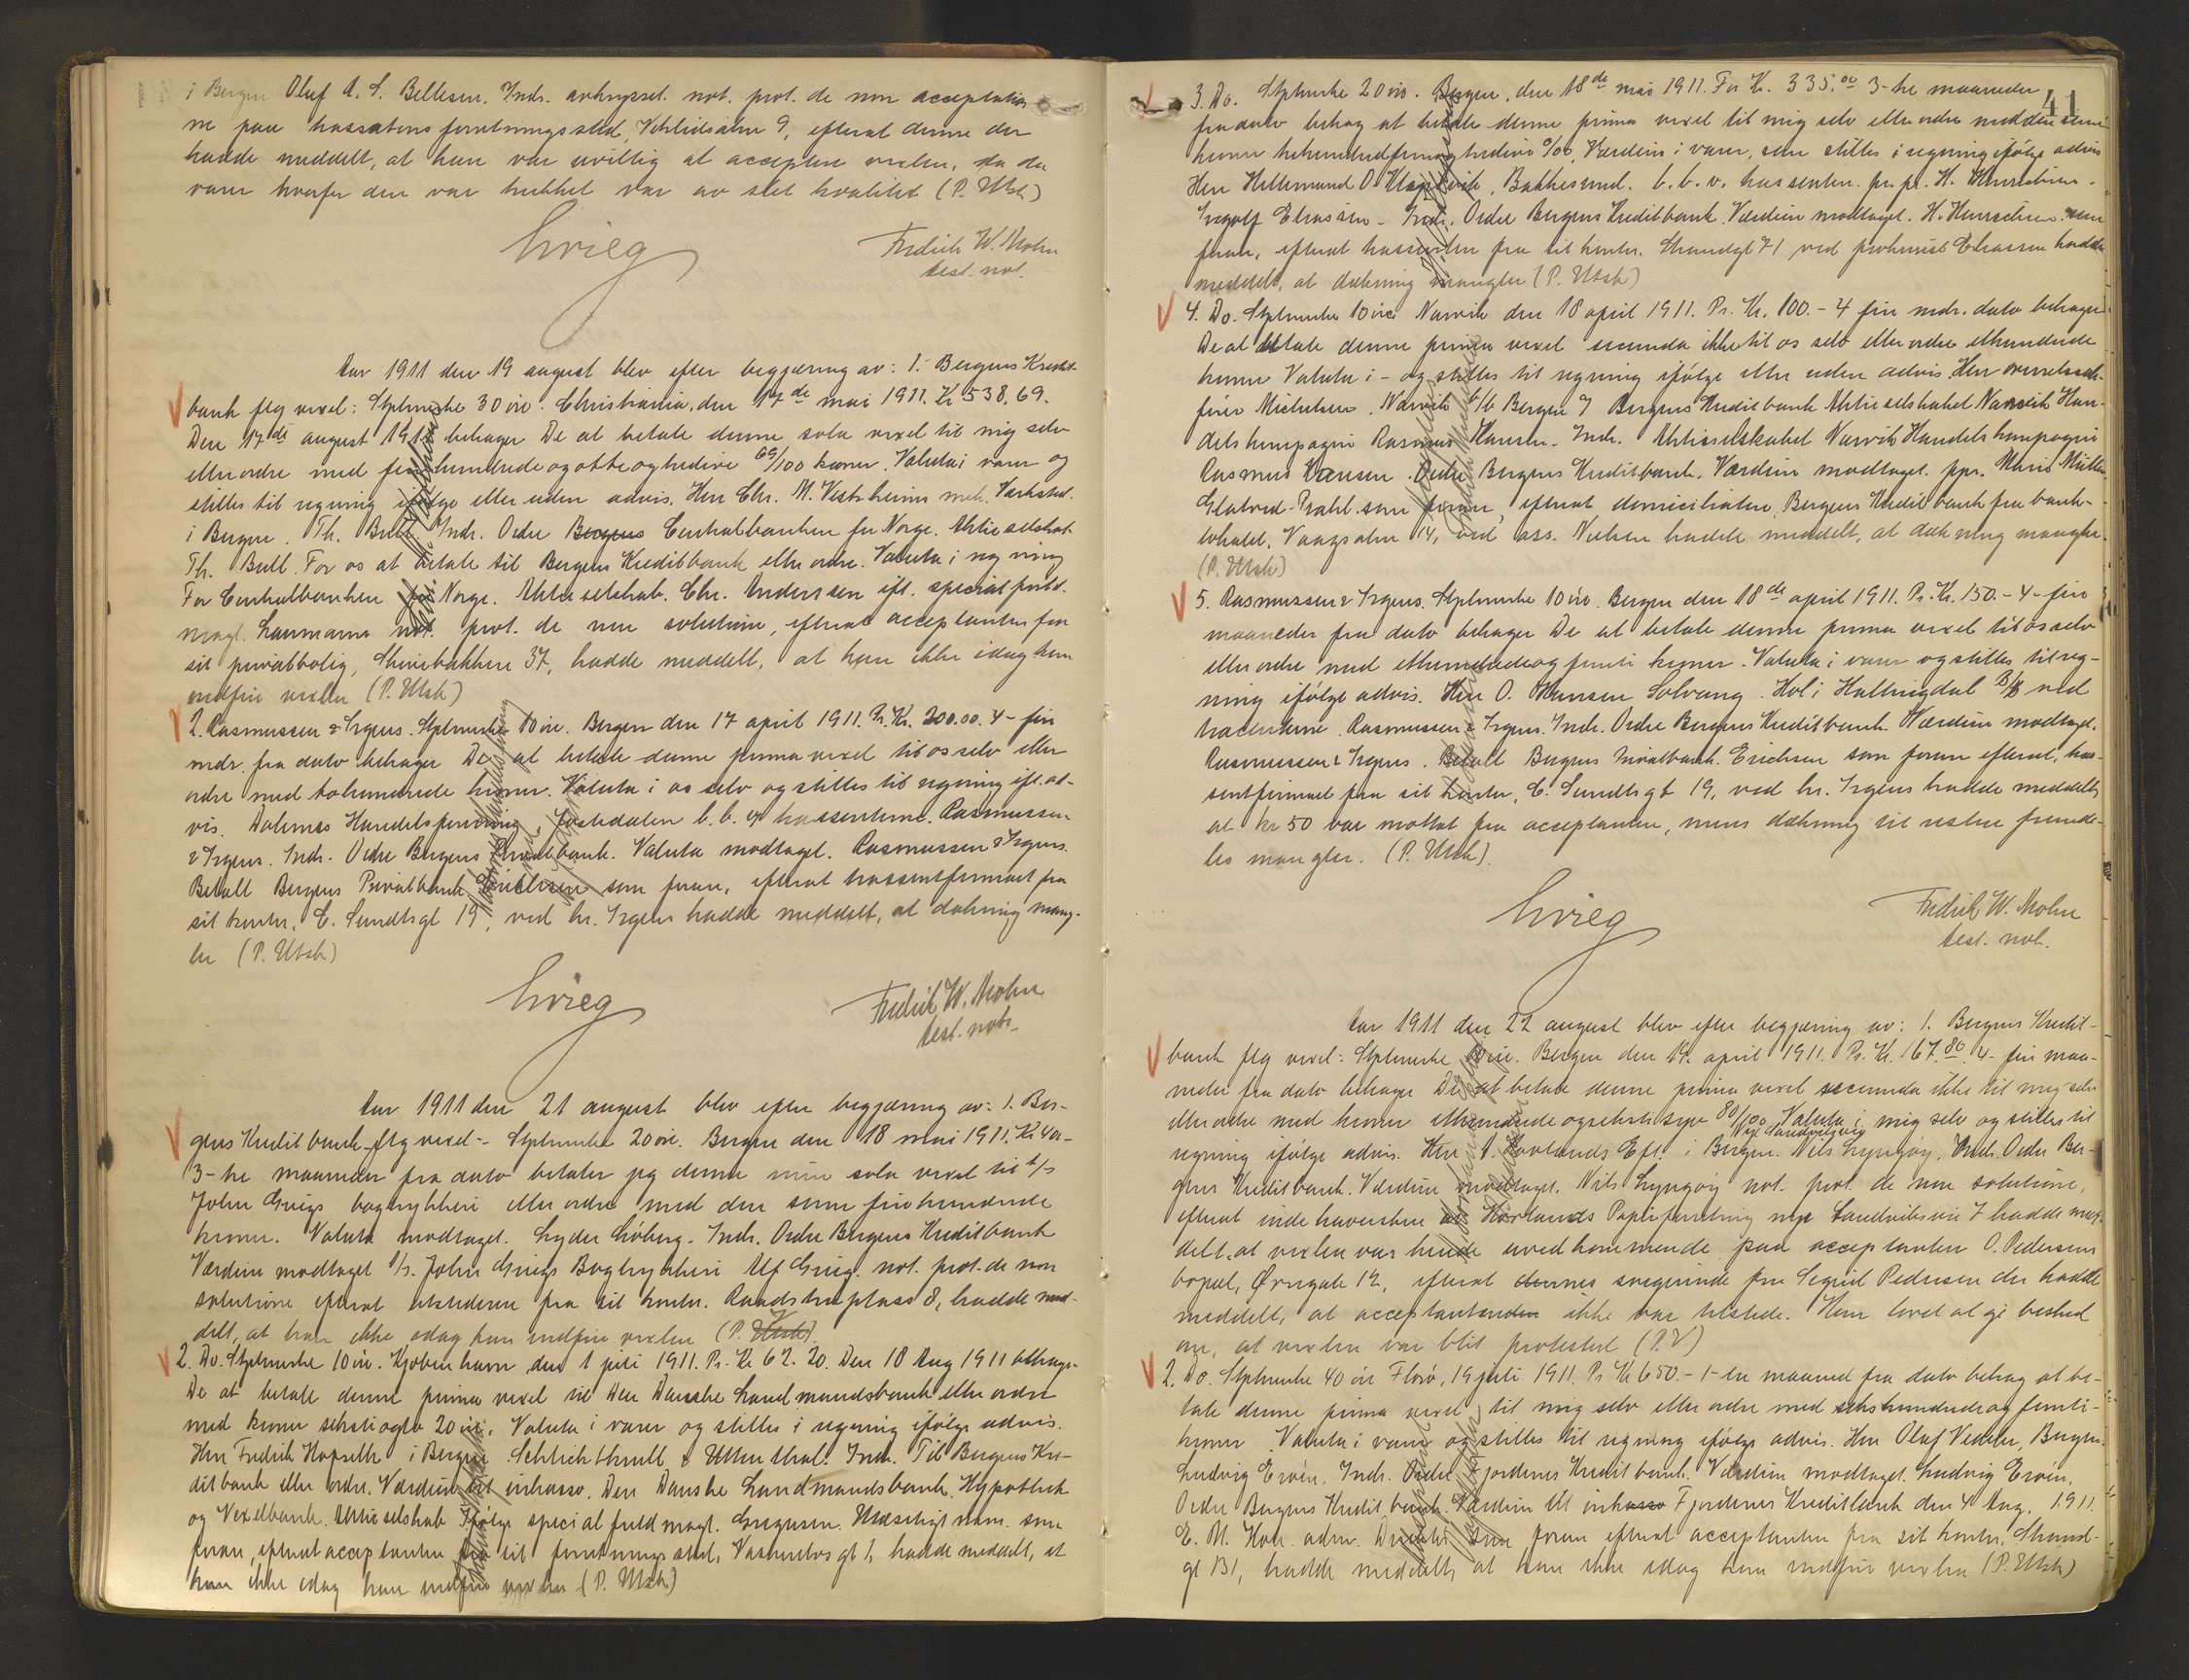 i Bergen Oluf A. S. Bellesen. Indr. avkrysset. not. prot. de non acceptatio-
ne paa trassatens forretningssted, Vetrlidsalm 9, efterat denne der
hadde meddelt, at han var uvillig at acceptere vexlen, da de
varer hvorfor den var trukket var av slet kvalitet (P. Utsk)
Grieg
Fredrik W. Mohn
test. not.
Aar 1911 den 19 august blev efter begjæring av: 1. Bergens Kredit-
bank flg vexel: Stplmerke 30 øre. Christiania, den 17de mai 1911. Kr 538,69.
Den 17de august 1911 behager De at betale denne sola vexel til mig selv
eller ordre med femhundrede og otte og tredive 69/100 kroner. Valuta i varer og
stilles til regning ifølge eller uden advis. Herr Chr. M. Vestrheim mek. Verksted.
i Bergen. Th. Bull. Indr. Ordre Bergens Centralbanken for Norge. Aktieselskab
Th. Bull. For os at betale til Bergens Kreditbank eller ordre. Valuta i regning
For Centralbanken for Norge. Aktieselskab. Chr. Anderssen ifl. special fuld.
magt. Laumann not. prot. de non solutione, efterat acceptanten fra
sit privatbolig, Skivebakken 37, hadde meddelt, at han ikke idag kan
indfri vexlen (P. Utsk)
2. Rasmussen & Irgens. Stplmerke 10 øre. Bergen den 17 april 1911. Pr. Kr. 200.00. 4- fire
mdr. fra dato behager De at betale denne prima vexel til os selv eller
ordre med tohundrede kroner. Valuta i os selv og stilles til regning ifl. ad-
vis. Dalernes Handelsforening, Jostedalen b. b. og trassenterne. Rasmussen
& Irgens. Indr. Ordre Bergens Privatbank. Valuta modtaget. Rasmussen & Irgens.
Betalt Bergens Privatbank Erichsen som foran, efterat trassentfirmaet fra
sit kontor, C. Sundtsgt 19, ved hr. Irgens hadde meddelt, at dækning mang-
ler (P. Utsk)
Grieg
Fredrik W. Mohn
test. not.
Aar 1911 den 21 august blev efter begjæring av: 1. Ber-
gens Kreditbank flg vexel:- Stplmerke 20 øre. Bergen den 18 mai 1911. Kr 400-
3- tre maaneder fra dato betaler jeg denne min sola vexel til A/s
John Griegs bogtrykkeri eller ordre med den sum firehundrede
kroner. Valuta modtaget. Lyder Løberg. Indr. Ordre Bergens Kreditbank
Værdien modtaget A/s. John Griegs Bogtrykkeri Alf Grieg. not. prot. de non
solutione efterat utstederen fra sit kontor. Raadstueplass 8, hadde med-
delt, at han ikke idag kan indfri vexlen (P. Utsk)
2. Do. Stplmerke 10 øre. Kjøbenhavn den 1 juli 1911. Pr. Kr 62.20. Den 18 Aug 1911 behager
De at betale denne prima vexel til Den Danske Landmandsbank eller ordre
med kroner sekstiogto 20 øre. Valuta i varer og stilles i regning ifølge advis.
Herr Fredrik Hopstth i Bergen. Schlichtkrull & Uttenthal. Indr. Til Bergens Kre-
ditbank eller ordre. Værdien til inkasso. Den Danske Landmandsbank. Hypothek
og Vexelbank. Aktieselskab Ifølge special fuldmagt. Gregersen. navn. som
foran, efterat acceptanten fra sit forretningssted, Vaskerelvsgt 1, hadde meddelt, at
han ikke idag kan indfri vexlen (P. Utsk)
41
3. Do. Stplmerke 20 øre. Bergen, den 18de mai 1911. For Kr. 335.00 3- tre maaneder
fra dato behag at betale denne prima vexel til mig selv eller ordre med den sum
kroner trehundredfemogtredive 0/00. Værdien i varer, som stilles i regning ifølge advis
Herr Hillemund O. , Bakkesund. b. b. v. trassenten. pr. pr. H. Henrichsen.
Ingolf Eliassen. Indr. Ordre Bergens Kreditbank. Værdien modtaget. H. Henrichsen som
foran, efterat trassenten fra sit kontor. Strandgt 71 ved prokurist Eliassen hadde
meddelt, at dækning mangler (P. Utsk)
4. Do. Stplmerke 10 øre Narvik den 18 april 1911. Pr. Kr. 100.- 4 fire mdr. dato behager
De at betale denne prima vexel secunda ikke til os selv eller ordre ethundrede
kroner Valuta i - og stilles til regning ifølge eller uden advis. Herr overrets-
fører Michelsen. Narvik b/b Bergen I Bergens Kreditbank Aktieselskabet Narvik Han-
delskompagni Rasmus Hansen. Indr. Aktieselskabet Narvik Handelskompagni
Rasmus Hansen. Ordre Bergens Kreditbank. Værdien modtaget. ppr. Maria Müller
Glatved-Prahl. som foran, efterat domiciliaten, Bergens Kreditbank fra bank-
lokalet, Vaagsalm 14, ved ass. Nielsen hadde meddelt, at dækning mangler.
(P. Utsk)
5. Rasmussen & Irgens. Stplmerke 10 øre. Bergen den 18de april 1911. Pr. Kr. 150.- 4- fire
maaneder fra dato behager De at betale denne prima vexel til os selv
eller ordre med ethundredeogfemti kroner. Valuta i varer og stilles til reg-
ning ifølge advis. Herr O. Hansen Solvang. Hol i Hallingdal B/B ved
trassenterne. Rasmussen & Irgens. Indr. Ordre Bergens Kreditbank. Værdien modtaget.
Rasmussen & Irgens. Betalt Bergens Privatbank. Erichsen som foran efterat, tras-
sentfirmaet fra sit kontor, C. Sundtsgt 19, ved hr. Irgens hadde meddelt,
at kr 50 var mottat fra acceptanten, mens dækning til resten fremde-
les mangler. (P. Utsk).
Grieg
Fredrik W. Mohn
test. not.
Aar 1911 den 22 august blev efter begjæring av: 1. Bergens Kredit-
bank flg vexel: Stplmerke 10 øre. Bergen den 19. april 1911. Pr. Kr. 167.80 4- fire maa-
neder fra dato behager De at betale denne prima vexel secunda ikke til mig selv
eller ordre med kroner ethundrede og sekstisyv 80/100 Valuta i mig selv og stilles til
regning ifølge advis. Herr A. Hovlands Eft. i Bergen. Nils Lyngøy. Indr. Ordre Ber-
gens Kreditbank. Værdien modtaget. Nils Lyngøy not. prot. de non solutione,
efterat indehaversken av Hovlands Papirforretning nye Sandviksvei 7 hadde med-
delt, at vexlen var hende uvedkommende paa acceptanten O. Pedersens
bopæl, Øvregate 12, efterat dennes svigerinde fru Sigrid Pedersen der hadde
meddelt, at acceptanten ikke var tilstede. Hun lovet at gi besked
om, at vexlen var blit protestert (P.V)
2. Do. Stplmerke 40 øre Florø, 19 juli 1911. Pr. Kr 650.- 1- en maaned fra dato behag at be-
tale denne prima vexel til mig selv eller ordre med sekshundredeogfemti-
kroner. Valuta i varer og stilles til regning ifølge advis. Herr Oluf Vedeler, Bergen.
Ludvig Ervén. Indr. Ordre Fjordenes Kreditbank. Værdien modtaget. Ludvig Ervén.
Ordre Bergens Kreditbank. Værdien til inkasso Fjordenes Kreditbank den 4 Aug. 1911.
E. M. Hov. adm. Direktør. som foran efterat acceptanten fra sit kontor, Strand-
gt 131, hadde meddelt, at han ikke idag kan indfri vexlen (P. Utsk)